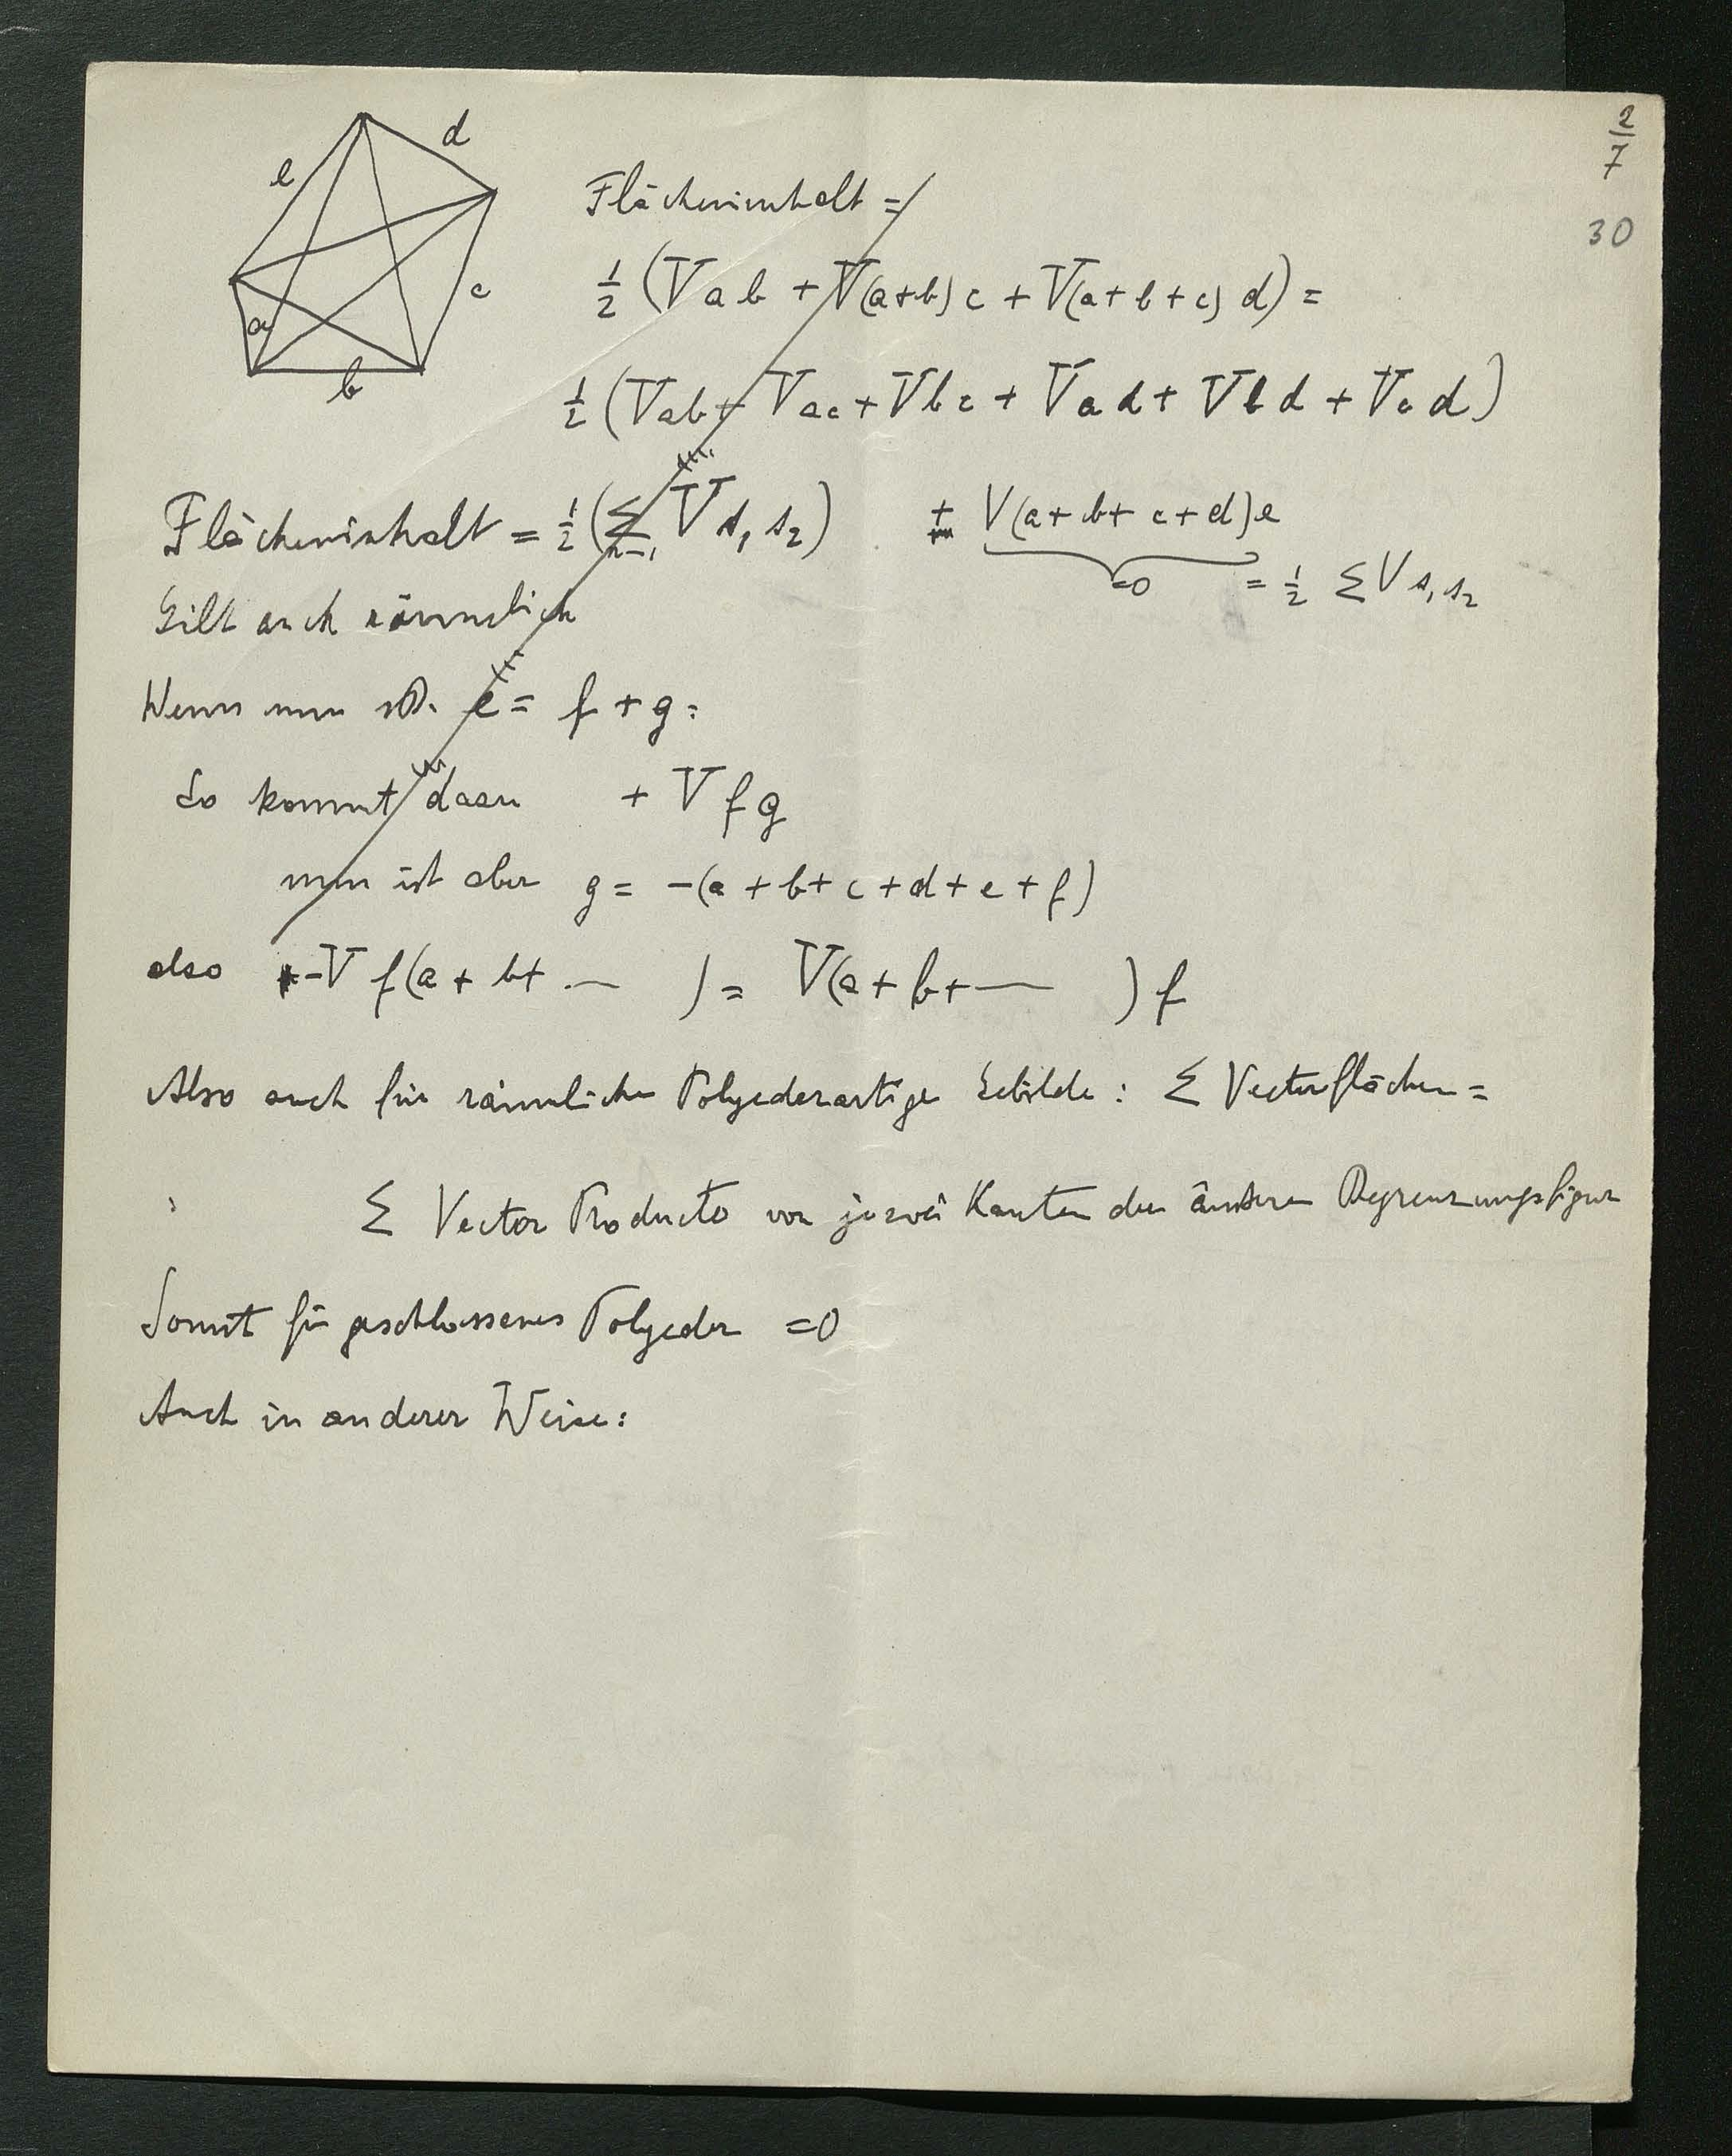 2/7
30
d
e
c
a
b
Flächeninhalt =
1/2 (Vab + V(a+b)c + V(a+b+c)d) =
1/2 (Vab + Vac + Vbc + Vad + Vbd + Vcd)
+ V(a+b+c+d)e
=0 = 1/2 Σ V s₁ s₂
Flächeninhalt = 1/2 (Σ V s₁ s₂)
Gilt auch räumlich
Wenn nun e = f + g:
So kommt dazu + V f g
nun ist aber g = -(a + b + c + d + e + f)
also -V f(a + b + ... ) = V(a + b + — ) f
Also auch für räumliche Polyederartige Gebilde: Σ Vectorflächen =
Σ Vector Producte von je zwei Kanten der äusseren Begrenzungsfigur
Somit für geschlossenes Polyeder =0
Auch in anderer Weise: